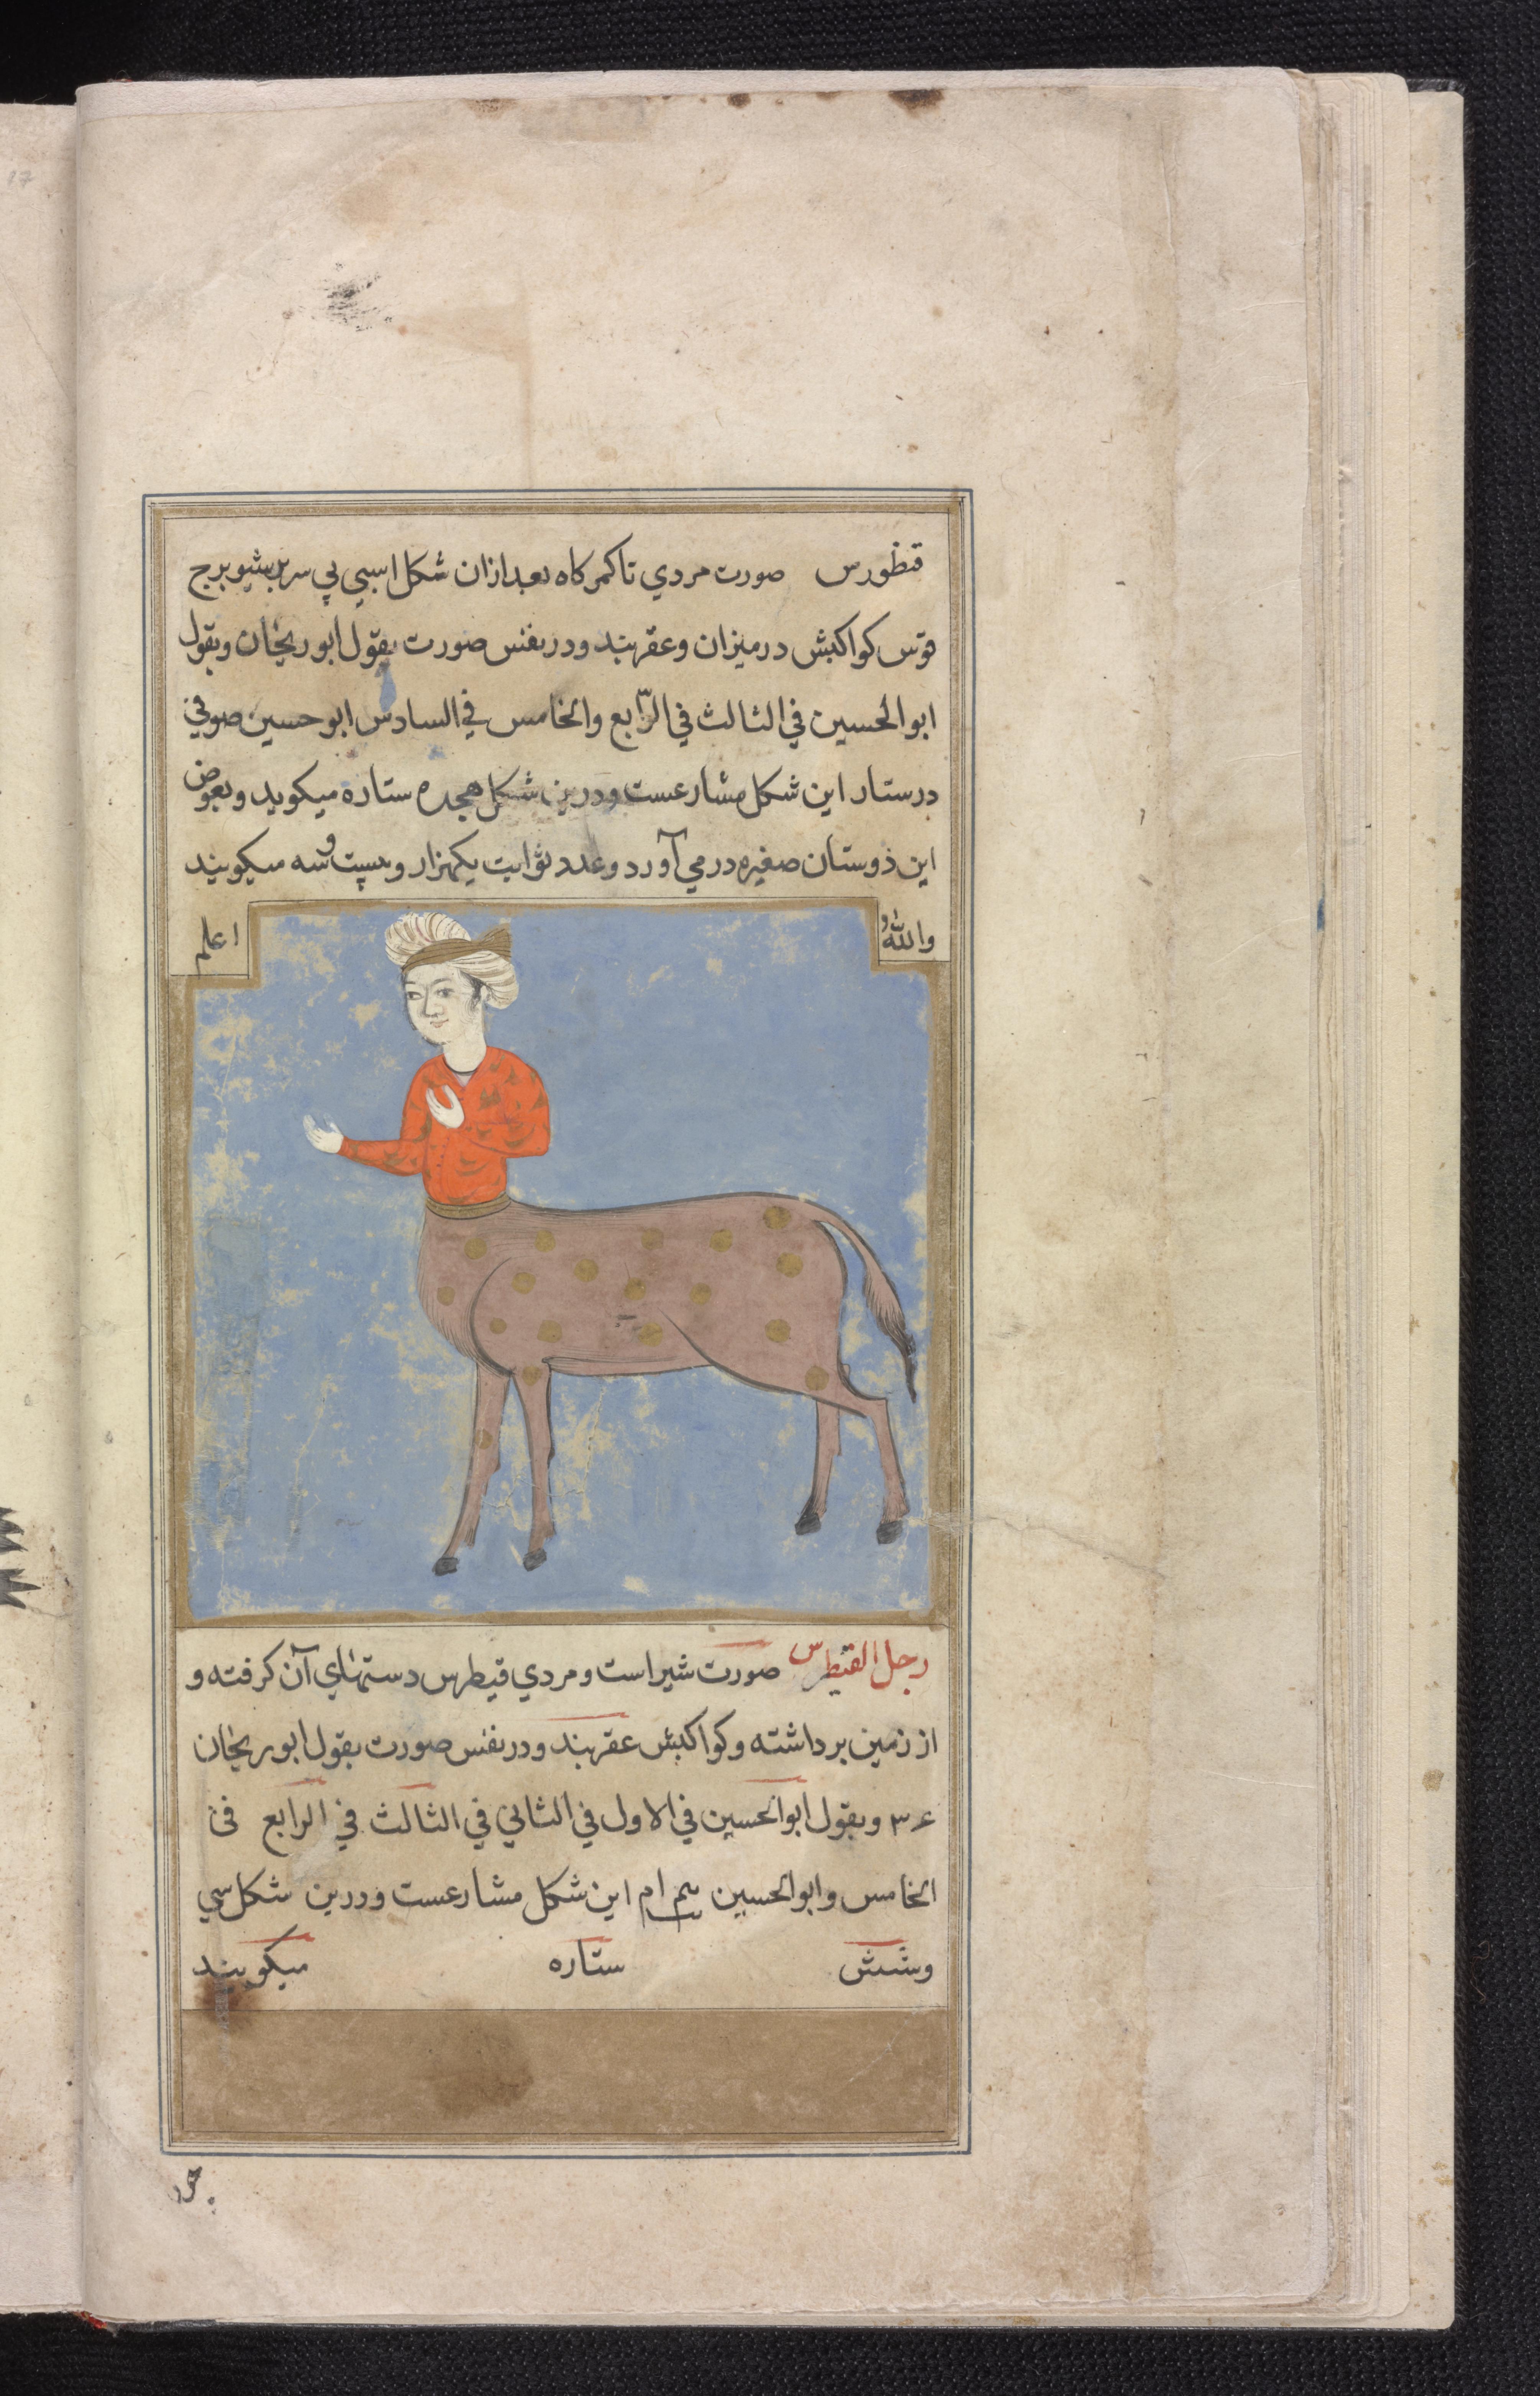 قنظورس صورت مردي تا کمرکاه بعد ازان شکل اسبي پي سر برج
قوس کواکبش در میزان و عقربند و در نفس صورت بقول ابو ریحان و بقول
ابو الحسین في الثالث في الرّابع والخامس في السادس ابو حسین صوفي
در ستار این شکل مشارعست و درین شکل هجده ستاره میکوید و بعوض
این ذوستان صغیره در مي آورد و عدد ثوابت یکهزار و بیست و سه میکویند
واللهُ اعلم
رجل القنیطرس صورت شیر است و مردي قیطرس دستهاي آن کرفته و
از زمین برداشته و کواکبش عقربند و در نفس صورت بقول ابو ریحان
۳۶ و بقول ابو الحسین في الاول في الثاني في الثالث في الرابع في
الخامس و ابو الحسین این شکل مشارعست و درین شکل سي
و شش ستاره میکویند